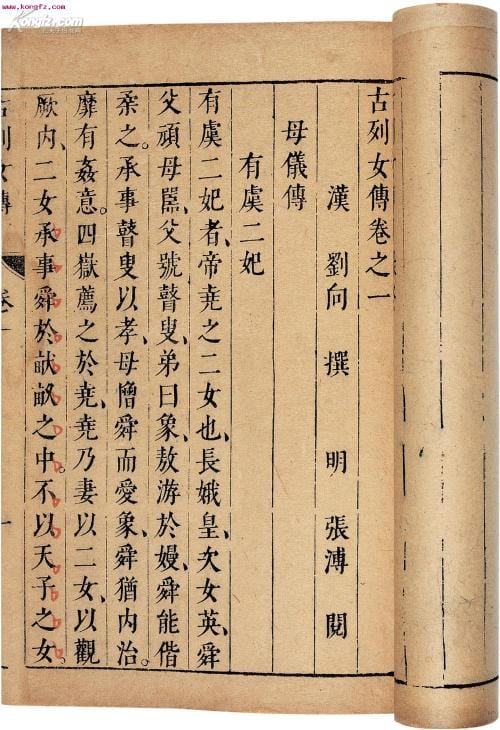 www.kongfz.com
古列女傳卷之一
漢 劉向 撰 明 張溥 閱
母儀傳
有虞二妃
有虞二妃者、帝堯之二女也、長娥皇、次女英、舜
父頑母嚚、父號瞽叟、弟曰象、敖游於嫚、舜能偕
柔之。承事瞽叟以孝、母憎舜而愛象、舜猶內治。
靡有姦意。四嶽薦之於堯、堯乃妻以二女、以觀
厥內、二女承事舜於畎畝之中。不以天子之女。
古列女傳 卷一 一